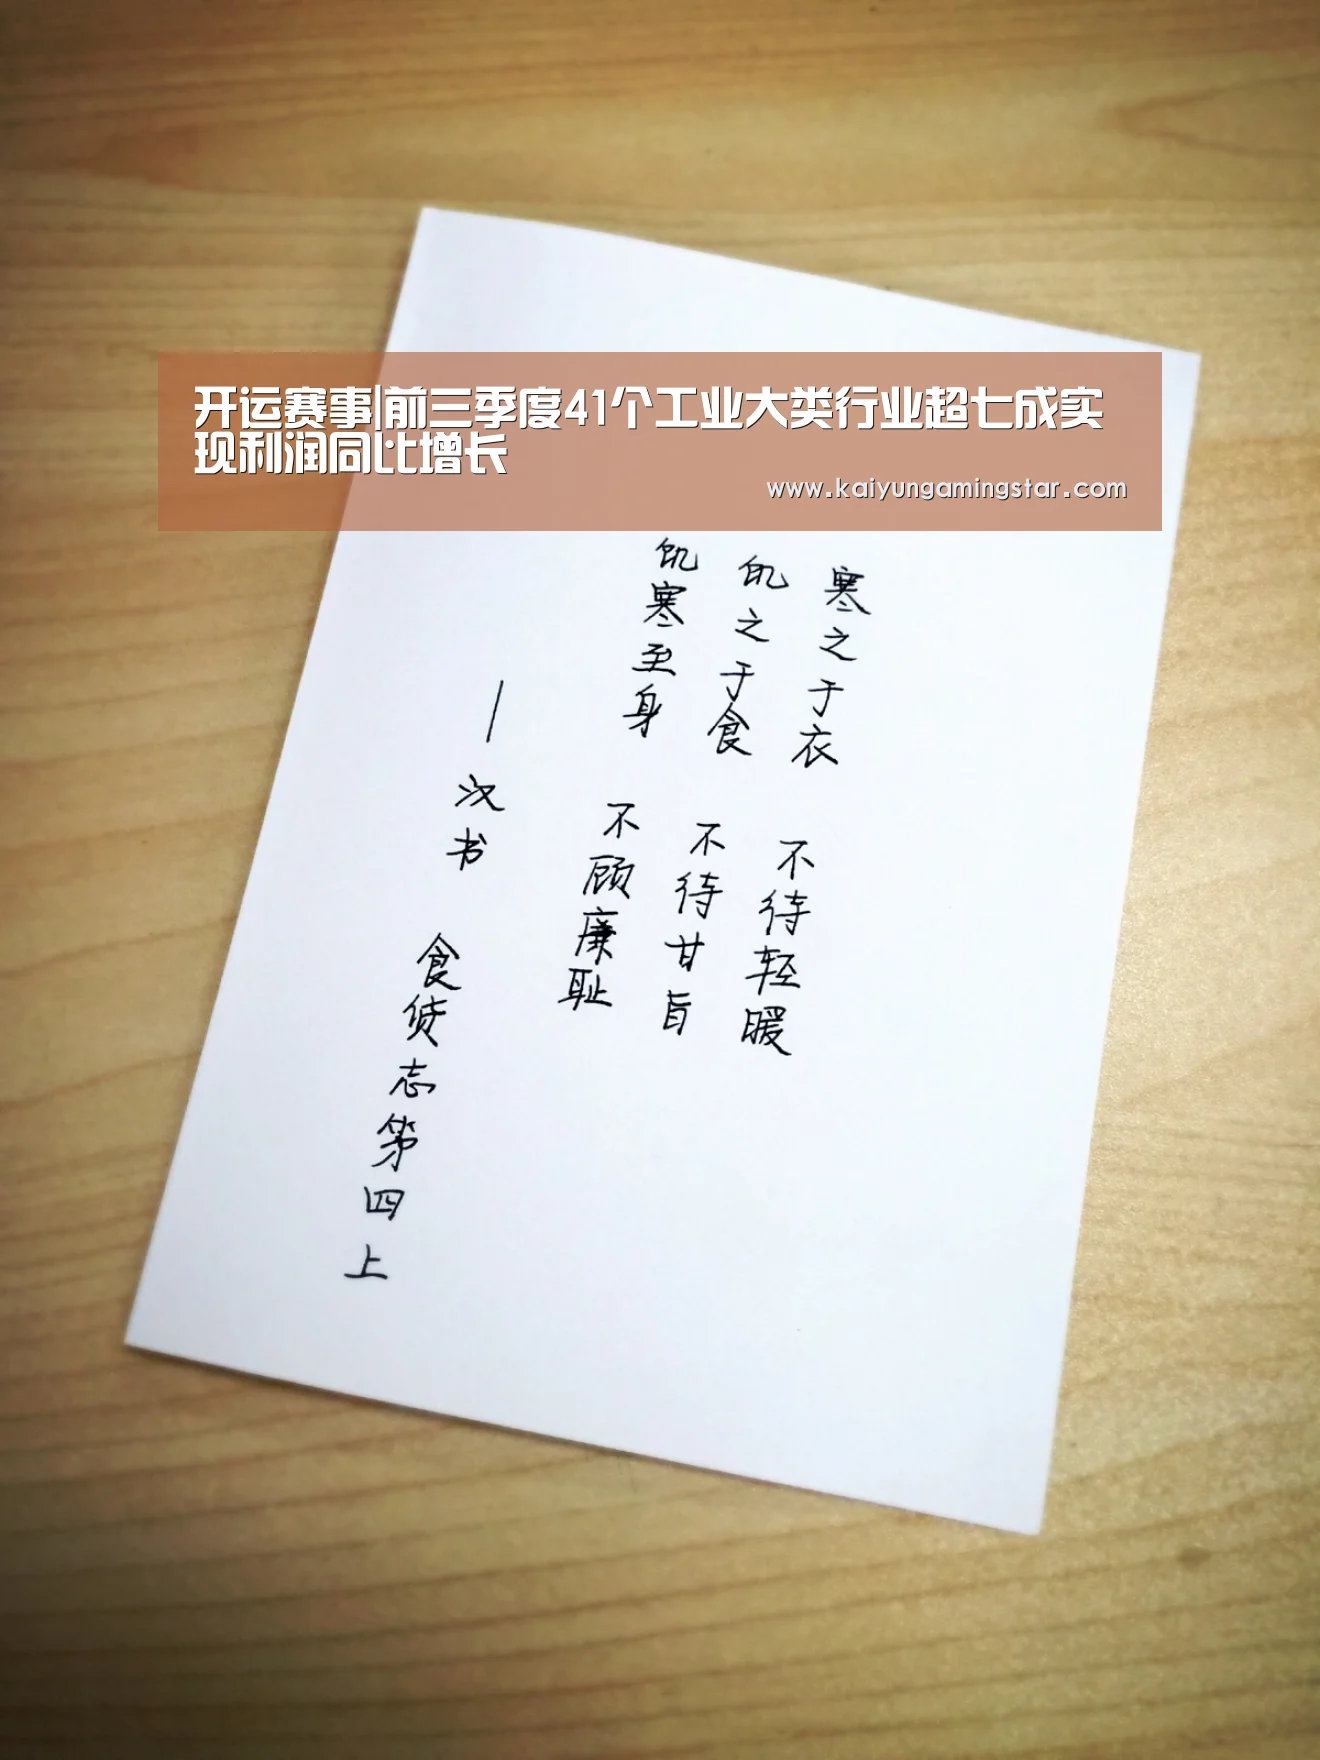 开运赛事|前三季度41个工业大类行业超七成实
现利润同比增长
www.kaiyungamingstar.com
寒之于衣 不待轻暖
饥之于食 不待甘旨
饥寒至身 不顾廉耻
—汉书 食货志第四上